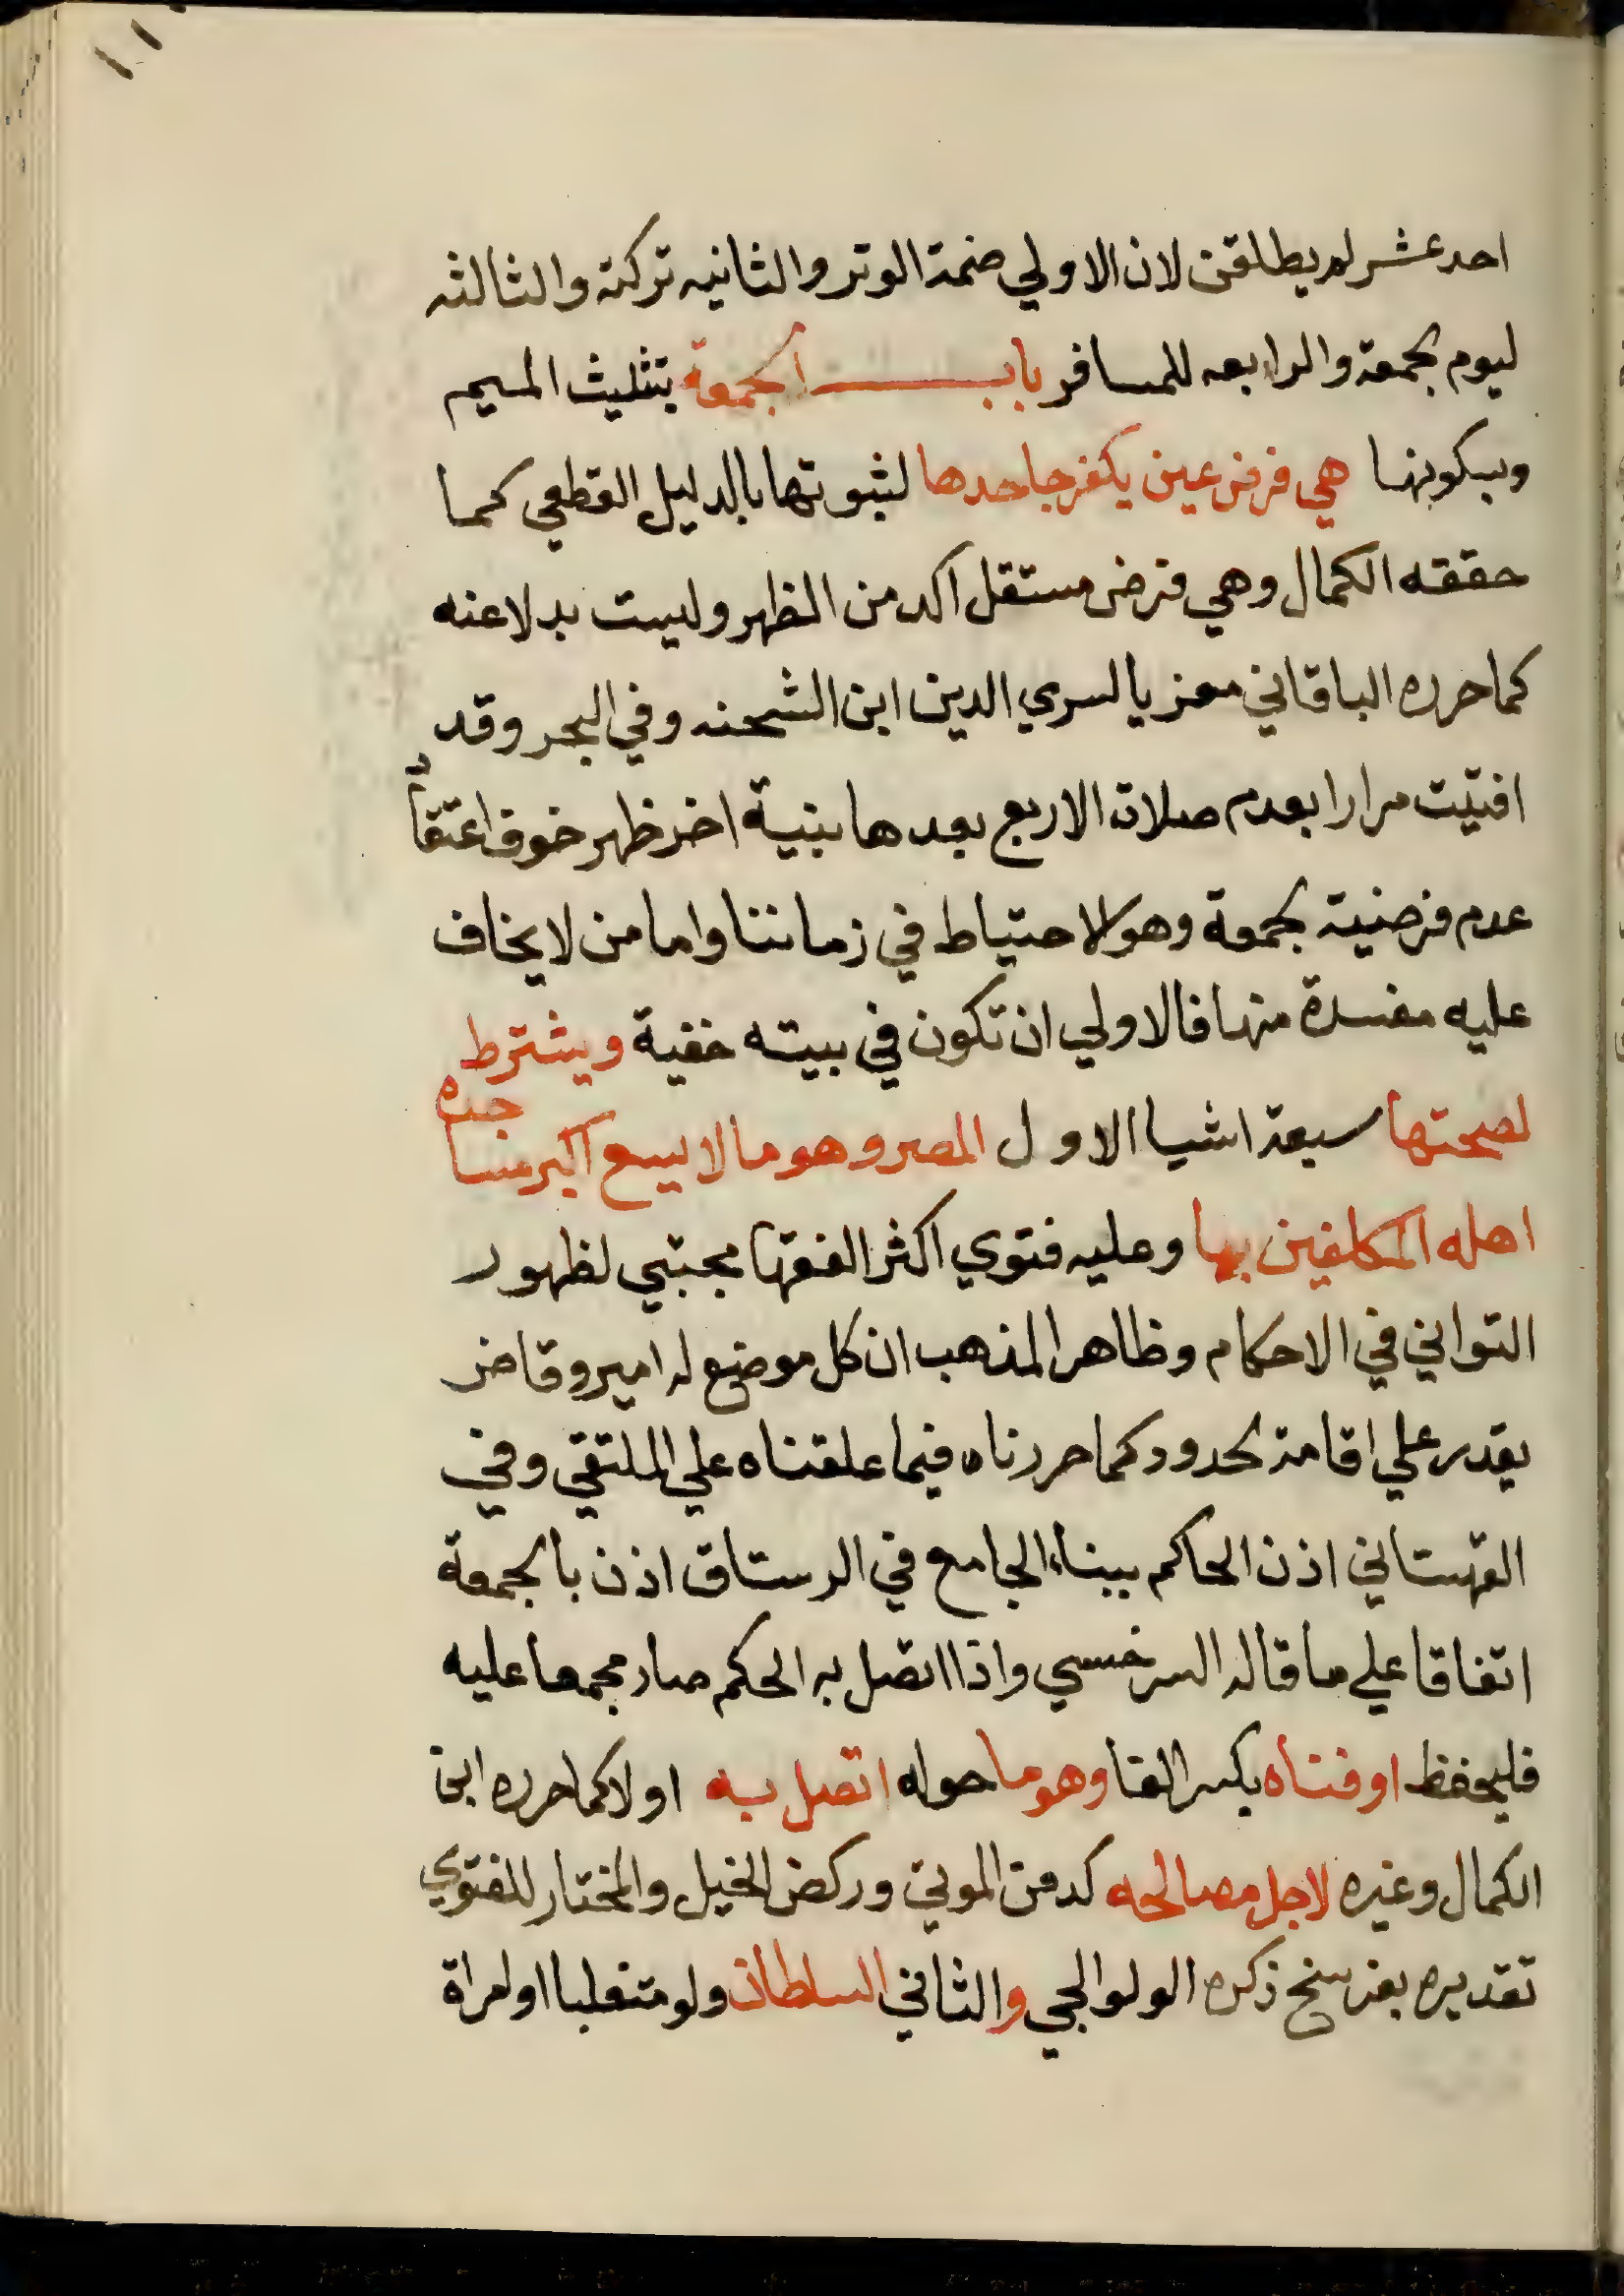 ١١٠
احد عشر لم يطلقن لان الاولي ضمت الوتر والثانيه تركته والثالثه
ليوم الجمعة والرابعه للمسافر باب الجمعة بتثليث الميم
وسكونها هي فرض عين يكفر جاحدها لثبوتها بالدليل القطعي كما
حققه الكمال وهي فرض مستقل اكد من الظهر وليست بدلا عنه
كما حرره الباقاني معزيا لسري الدين ابن الشحنه وفي البحر وقد
افتيت مرارا بعدم صلاة الاربع بعدها بنية اخر ظهر خوف اعتقاد
عدم فرضية الجمعة وهو الاحتياط في زماننا واما من لا يخاف
عليه مفسدة منها فالاولي ان تكون في بيته خفية ويشترط
لصحتها سبعة اشيا الاول المصر وهو ما لا يسع اكبر مساجده
اهله المكلفين بها وعليه فتوي اكثر الفقها مجتبي لظهور
التواني في الاحكام وظاهر المذهب ان كل موضع له امير وقاض
يقدر علي اقامة الحدود كما حررناه فيما علقناه علي الملتقي وفي
القهستاني اذن الحاكم ببناء الجامع في الرستاق اذن بالجمعة
اتفاقا علي ما قاله السرخسي واذا اتصل به الحكم صار مجمعا عليه
فليحفظ او فناه بكسر الفا وهو ما حوله اتصل به اولا كما حرره ابن
الكمال وغيره لاجل مصالحه كدفن الموتي وركض الخيل والمختار للفتوي
تقديره بفرسخ ذكره الولوالجي والثاني السلطان ولو متغلبا او امراة